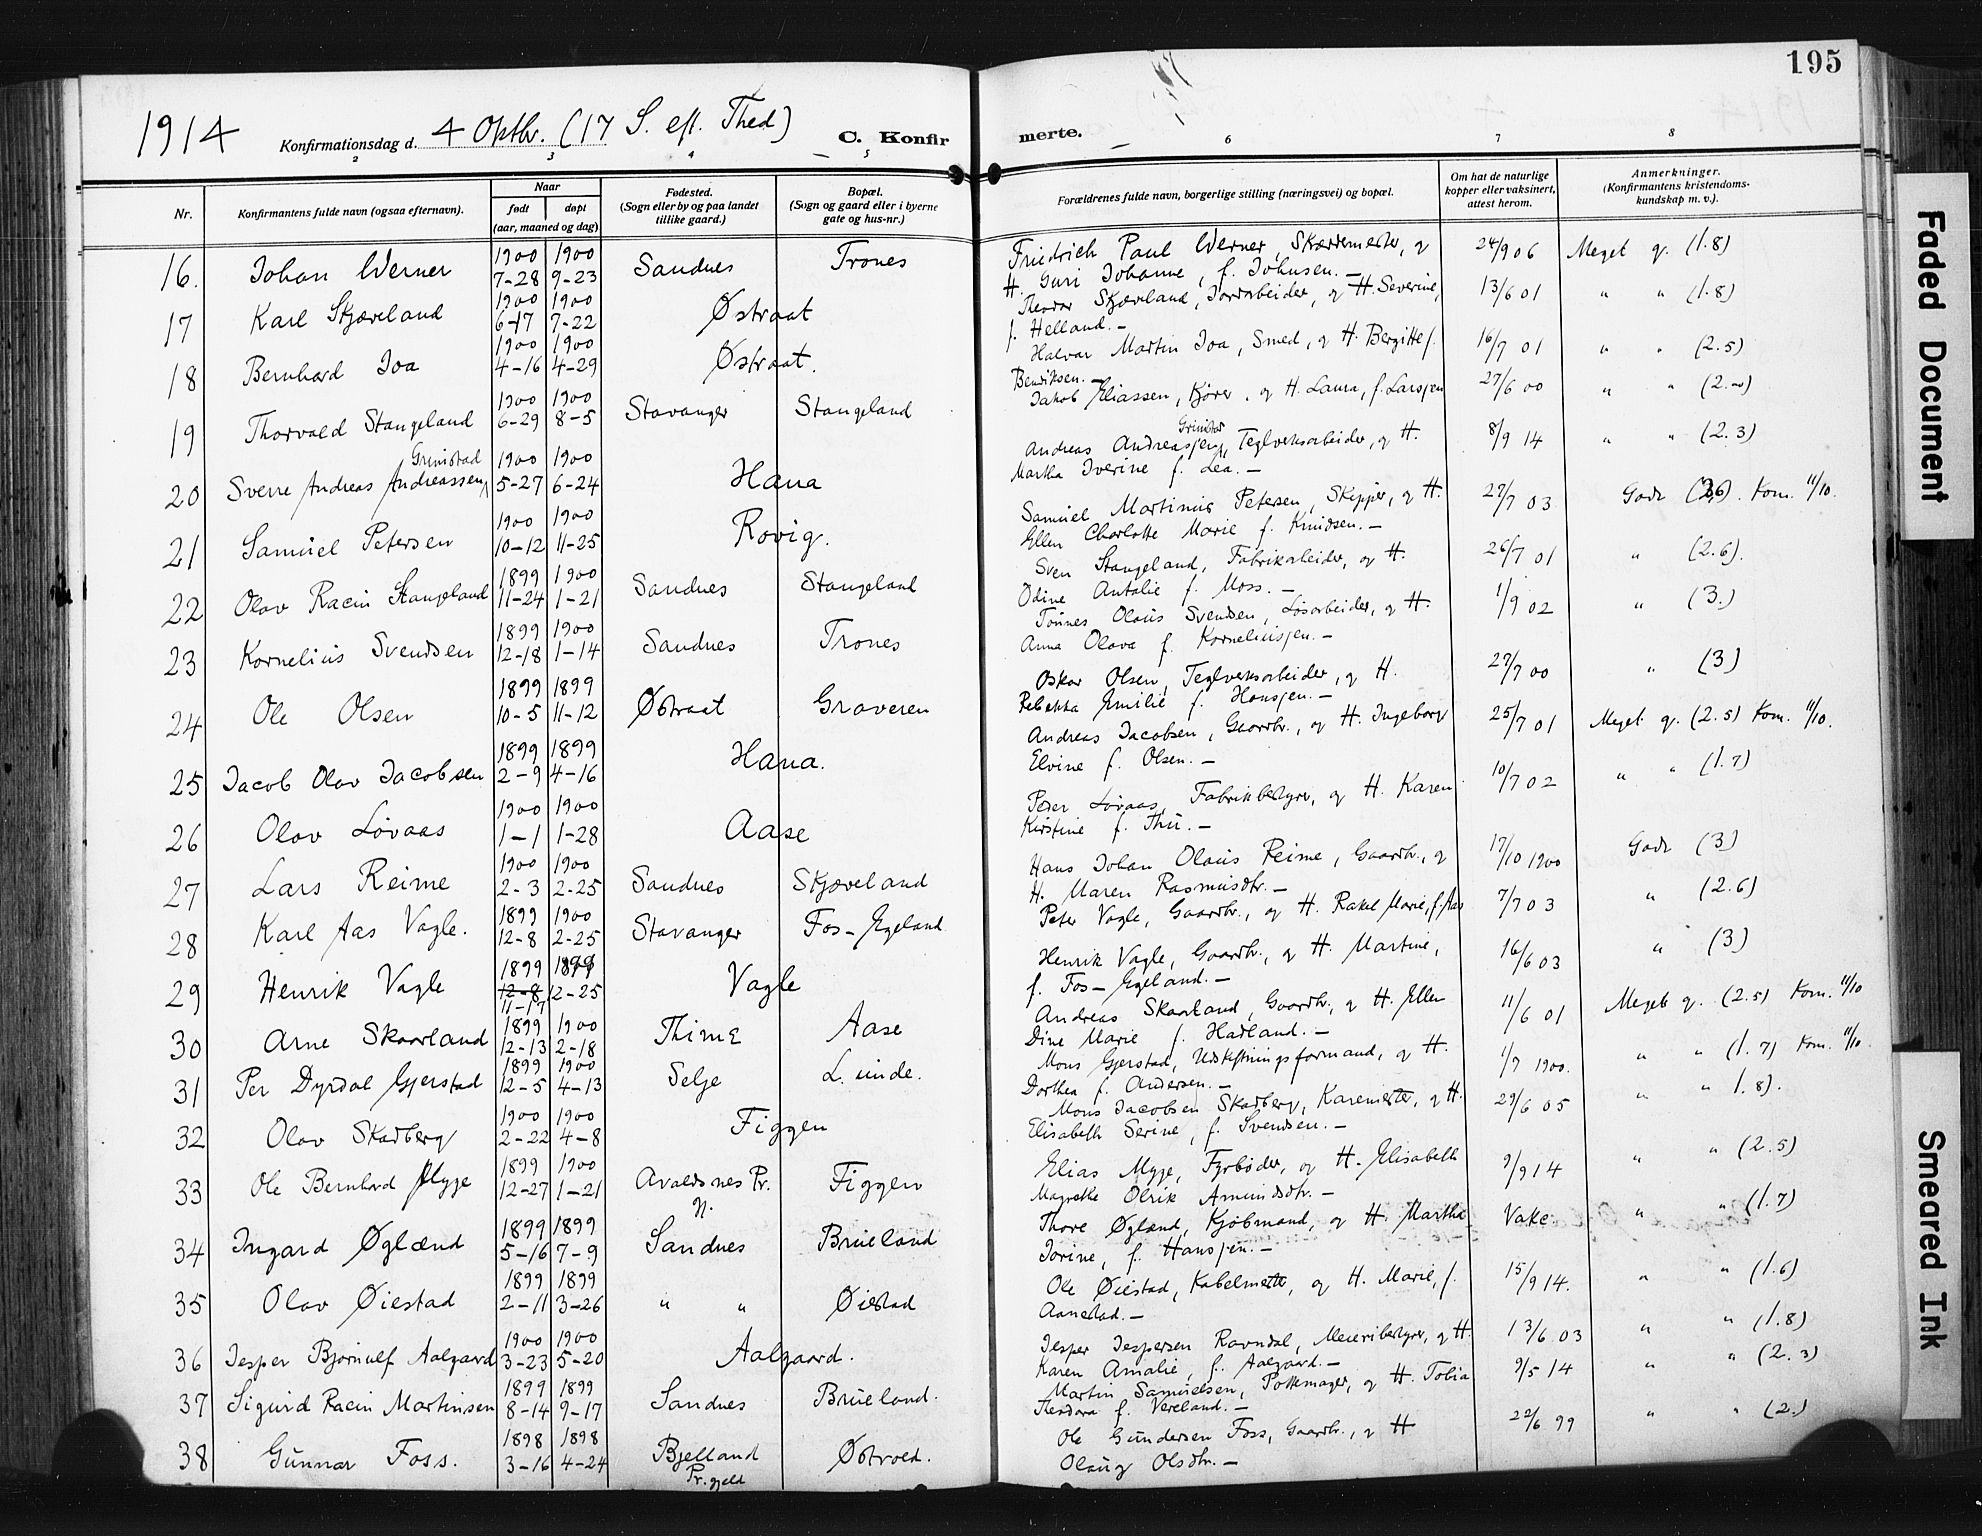 195
1914 Konfirmationsdag d. 4 Optbr. (17 S. eft. Thed) C. Konfirmerte.
2 3 4 5 6 7 8
Nr. Konfirmantens fulde navn (ogsaa efternavn). Naar født døpt (aar, maaned og dag) Fødested. (Sogn eller by og paa landet tillike gaard.) Bopæl. (Sogn og gaard eller i byerne gate og hus-nr.) Forældrenes fulde navn, borgerlige stilling (næringsvei) og bopæl. Om hat de naturlige kopper eller vaksinert, attest herom. Anmerkninger. (Konfirmantens kristendoms-kundskap m. v.).
16. Johan Werner 1900 7-28 1900 9-23 Sandnes Trones Friedrich Paul Werner, Skærremester, og H. Guri Johanne, f. Johnsen.- 24/9 06 Meget g. (1.8)
17 Karl Skjæveland 1900 6-17 1900 7-22 Østraat Teodor Skjæveland, Jordarbeider, og H. Severine, f. Helland.- 13/6 01 " " (1.8)
18 Bernhard Joa 1900 4-16 1900 4-29 Østraat. Halvar Martin Joa, Smed, og H. Bergitte f. Bendiksen.- 16/7 01 " " (2.5)
19 Thorvald Stangeland 1900 6-29 1900 8-5 Stavanger Stangeland Jakob Eliassen, Kjører, og H. Laura, f. Larsjen 27/6 00 " "
20 Sverre Andreas Andreassen Grimstad 1900 5-27 1900 6-24 Hana Andreas Andreasjen Teglverksarbeider, og H. Martha Iverine f. Lea.- 8/9 14 " " (2.3)
21 Samuel Petersen 1900 10-12 1900 11-25 Rovig. Samuel Martinus Petersen, Skipper, og H. Ellen Charlotte Marie f. Knudsen.- 27/7 03 Godt Kom. 11/10.
22 Olav Racin Stangeland 1899 11-24 1900 1-21 Sandnes Stangeland Sven Stangeland, Fabrikarbeider, og H. Odine Antalie f. Moss.- 26/7 01 " (2.6).
23 Kornelius Svendsen 1899 12-18 1900 1-14 Sandnes Trones Tønnes Olaus Svendsen, Løsarbeider, og H. Anna Olava f. Korneliusjen.- 1/9 02 " (3.)
24 Ole Olsen 1899 10-5 1899 11-12 Østraat Graveren Oskar Olsen, Teglverksarbeider, og H. Rebekka Emilie f. Hansjen.- 27/7 00 " (3)
25 Jacob Olav Jacobsen 1899 2-9 1899 4-16 Hana. Andreas Jacobsen, Gaardbr., og H. Ingeborg Elvine f. Olsen.- 25/7 01 Meget g. (2.5) Kom. 11/10.
26 Olav Løvaas 1900 1-1 1900 1-28 Aase Peder Løvaas, Fabrikbestyrer, og H. Karen Kirstine f. Thu.- 10/7 02 " " (1.7)
27 Lars Reime 1900 2-3 1900 2-25 Sandnes Skjæveland Hans Johan Olaus Reime, Gaardbr., og H. Maren Rasmusdtr.- 17/10 1900 Godt (3)
28 Karl Aas Vagle. 1899 12-8 1900 2-25 Stavanger Fos-Egeland Peter Vagle, Gaardbr., og H. Rakel Marie, f. Aas 7/7 03 " (2.6)
29 Henrik Vagle 1899 12-8 11-17 1899 12-25 Vagle Henrik Vagle, Gaardbr., og H. Martine, f. Fos-Egeland.- 16/6 03 " (3)
30 Arne Skaarland 1899 12-13 1900 2-18 Thime Aase Andreas Skaarland, Gaardbr., og H. Ellen Dine Marie f. Hadland.- 11/6 01 Meget g. (2.5) Kom. 11/10
31 Per Dyrdal Gjerstad 1899 12-5 1900 4-13 Selje Lunde. Mons Gjerstad, Utskiftningsformand, og H. Dorthea f. Andersen.- 1/7 1900. " " (1.7) Kom. 11/10.
32 Olav Skadberg 1900 2-22 1900 4-8 Figgen Mons Jacobsen Skadberg, Karemester, og H. Elisabeth Serine, f. Svendsen.- 29/6 05 " " 1.8).
33 Ole Bernhard Myge 1899 12-27 1900 1-21 Avaldsnes Pr. Figgen Elias Myge, Fyrbøder, og H. Elisabeth Magrethe Olrik Amundsdtr.- 9/9 14 " " (2.5)
34 Ingard Øglænd 1899 5-16 1899 7-9 Sandnes Brueland Thore Øglænd, Kjøbmand, og H. Martha Jorine, f. Hansjen.- Vakc. " " (1.7)
35 Olav Øiestad 1899 2-11 1899 3-26 " " Øiestad Ole Øiestad, Kabelmester, og H. Marie, f. Aanestad.- 15/9 14. " " (1.6)
36 Jesper Bjørnulf Aalgaard 1900 3-23 1900 5-20 Aalgaard. Jesper Jespersen Ravndal, Meieribestyrer, og H. Karen Amalie, f. Aalgaard.- 13/6 03 " " (1.8)
37 Sigurd Racin Martinsen 1899 8-14 1899 9-17 Sandnes Brueland. Martin Samuelsen, Pottemager, og H. Tobia Teodora f. Vereland.- 9/5 14 " " (2.3)
38 Gunnar Foss. 1898 3-16 1898 4-24 Bjelland Pr.gjeld Østvold. Ole Gundersen Foss, Gaardbr., og H Olaug Olsdtr.- 22/6 99 " " (2.)
Faded Document
Smeared Ink